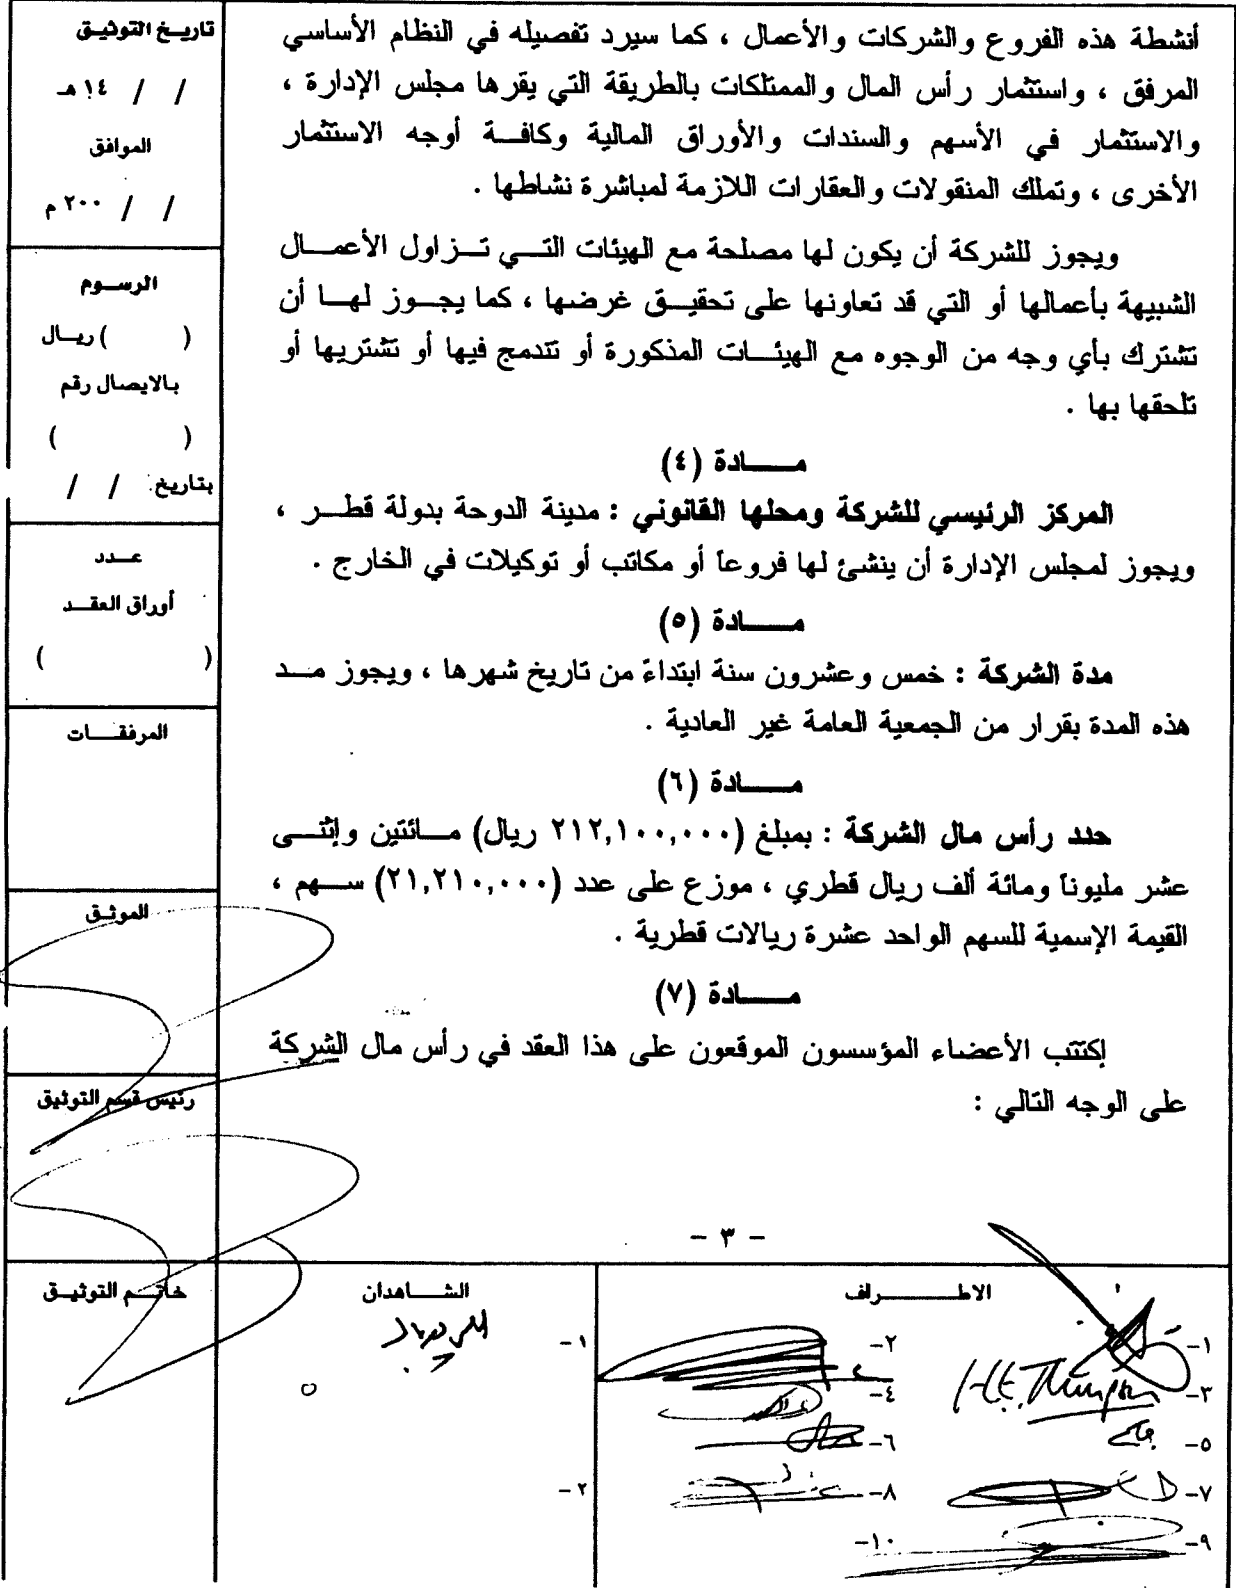 أنشطة هذه الفروع والشركات والأعمال ، كما سيرد تفصيله في النظام الأساسي
المرفق ، واستثمار رأس المال والممتلكات بالطريقة التي يقرها مجلس الإدارة ،
والاستثمار في الأسهم والسندات والأوراق المالية وكافـــة أوجه الاستثمار
الأخرى ، وتملك المنقولات والعقارات اللازمة لمباشرة نشاطها .
ويجوز للشركة أن يكون لها مصلحة مع الهيئات التـــي تـــزاول الأعمـــال
الشبيهة بأعمالها أو التي قد تعاونها على تحقيـــق غرضها ، كما يجـــوز لهـــا أن
تشترك بأي وجه من الوجوه مع الهيئـــات المذكورة أو تندمج فيها أو تشتريها أو
تلحقها بها .
مـــــادة (٤)
المركز الرئيسي للشركة ومحلها القانوني : مدينة الدوحة بدولة قطـــر ،
ويجوز لمجلس الإدارة أن ينشئ لها فروعاً أو مكاتب أو توكيلات في الخارج .
مـــــادة (٥)
مدة الشركة : خمس وعشرون سنة ابتداءً من تاريخ شهرها ، ويجوز مـــد
هذه المدة بقرار من الجمعية العامة غير العادية .
مـــــادة (٦)
حدد رأس مال الشركة : بمبلغ (٢١٢,١٠٠,٠٠٠ ريال) مـــائتين وإثنـــى
عشر مليوناً ومائة ألف ريال قطري ، موزع على عدد (٢١,٢١٠,٠٠٠) ســـهم ،
القيمة الإسمية للسهم الواحد عشرة ريالات قطرية .
مـــــادة (٧)
إكتتب الأعضاء المؤسسون الموقعون على هذا العقد في رأس مال الشركة
على الوجه التالي :
– ٣ –
تاريـــخ التوثيـــق
/ / ١٤ هـ
الموافق
/ / ٢٠٠ م
الرســـوم
( ) ريـــال
بالايصال رقم
( )
بتاريخ / /
عـــدد
أوراق العقـــد
( )
المرفقـــات
الموثـــق
رئيس قسم التوثيق
خاتـــم التوثيـــق
الشـــاهدان
١–
٢–
الاطـــــــراف
١–
٢–
٣–
٤–
٥–
٦–
٧–
٨–
٩–
١٠–